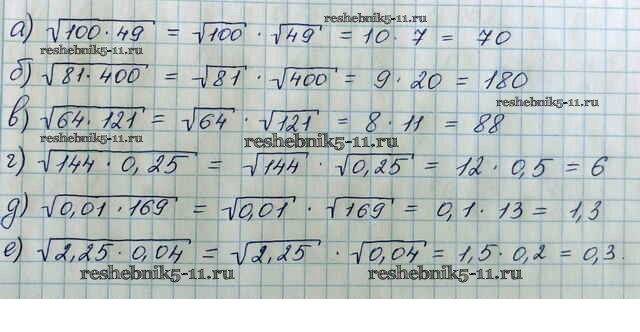 а) √100·49 = √100 · √49 = 10 · 7 = 70
reshebnik5-11.ru
reshebnik5-11.ru
б) √81·400 = √81 · √400 = 9 · 20 = 180
reshebnik5-11.ru
в) √64·121 = √64 · √121 = 8 · 11 = 88
reshebnik5-11.ru
reshebnik5-11.ru
г) √144·0,25 = √144 · √0,25 = 12 · 0,5 = 6
д) √0,01·169 = √0,01 · √169 = 0,1 · 13 = 1,3
е) √2,25·0,04 = √2,25 · √0,04 = 1,5 · 0,2 = 0,3.
reshebnik5-11.ru
reshebnik5-11.ru